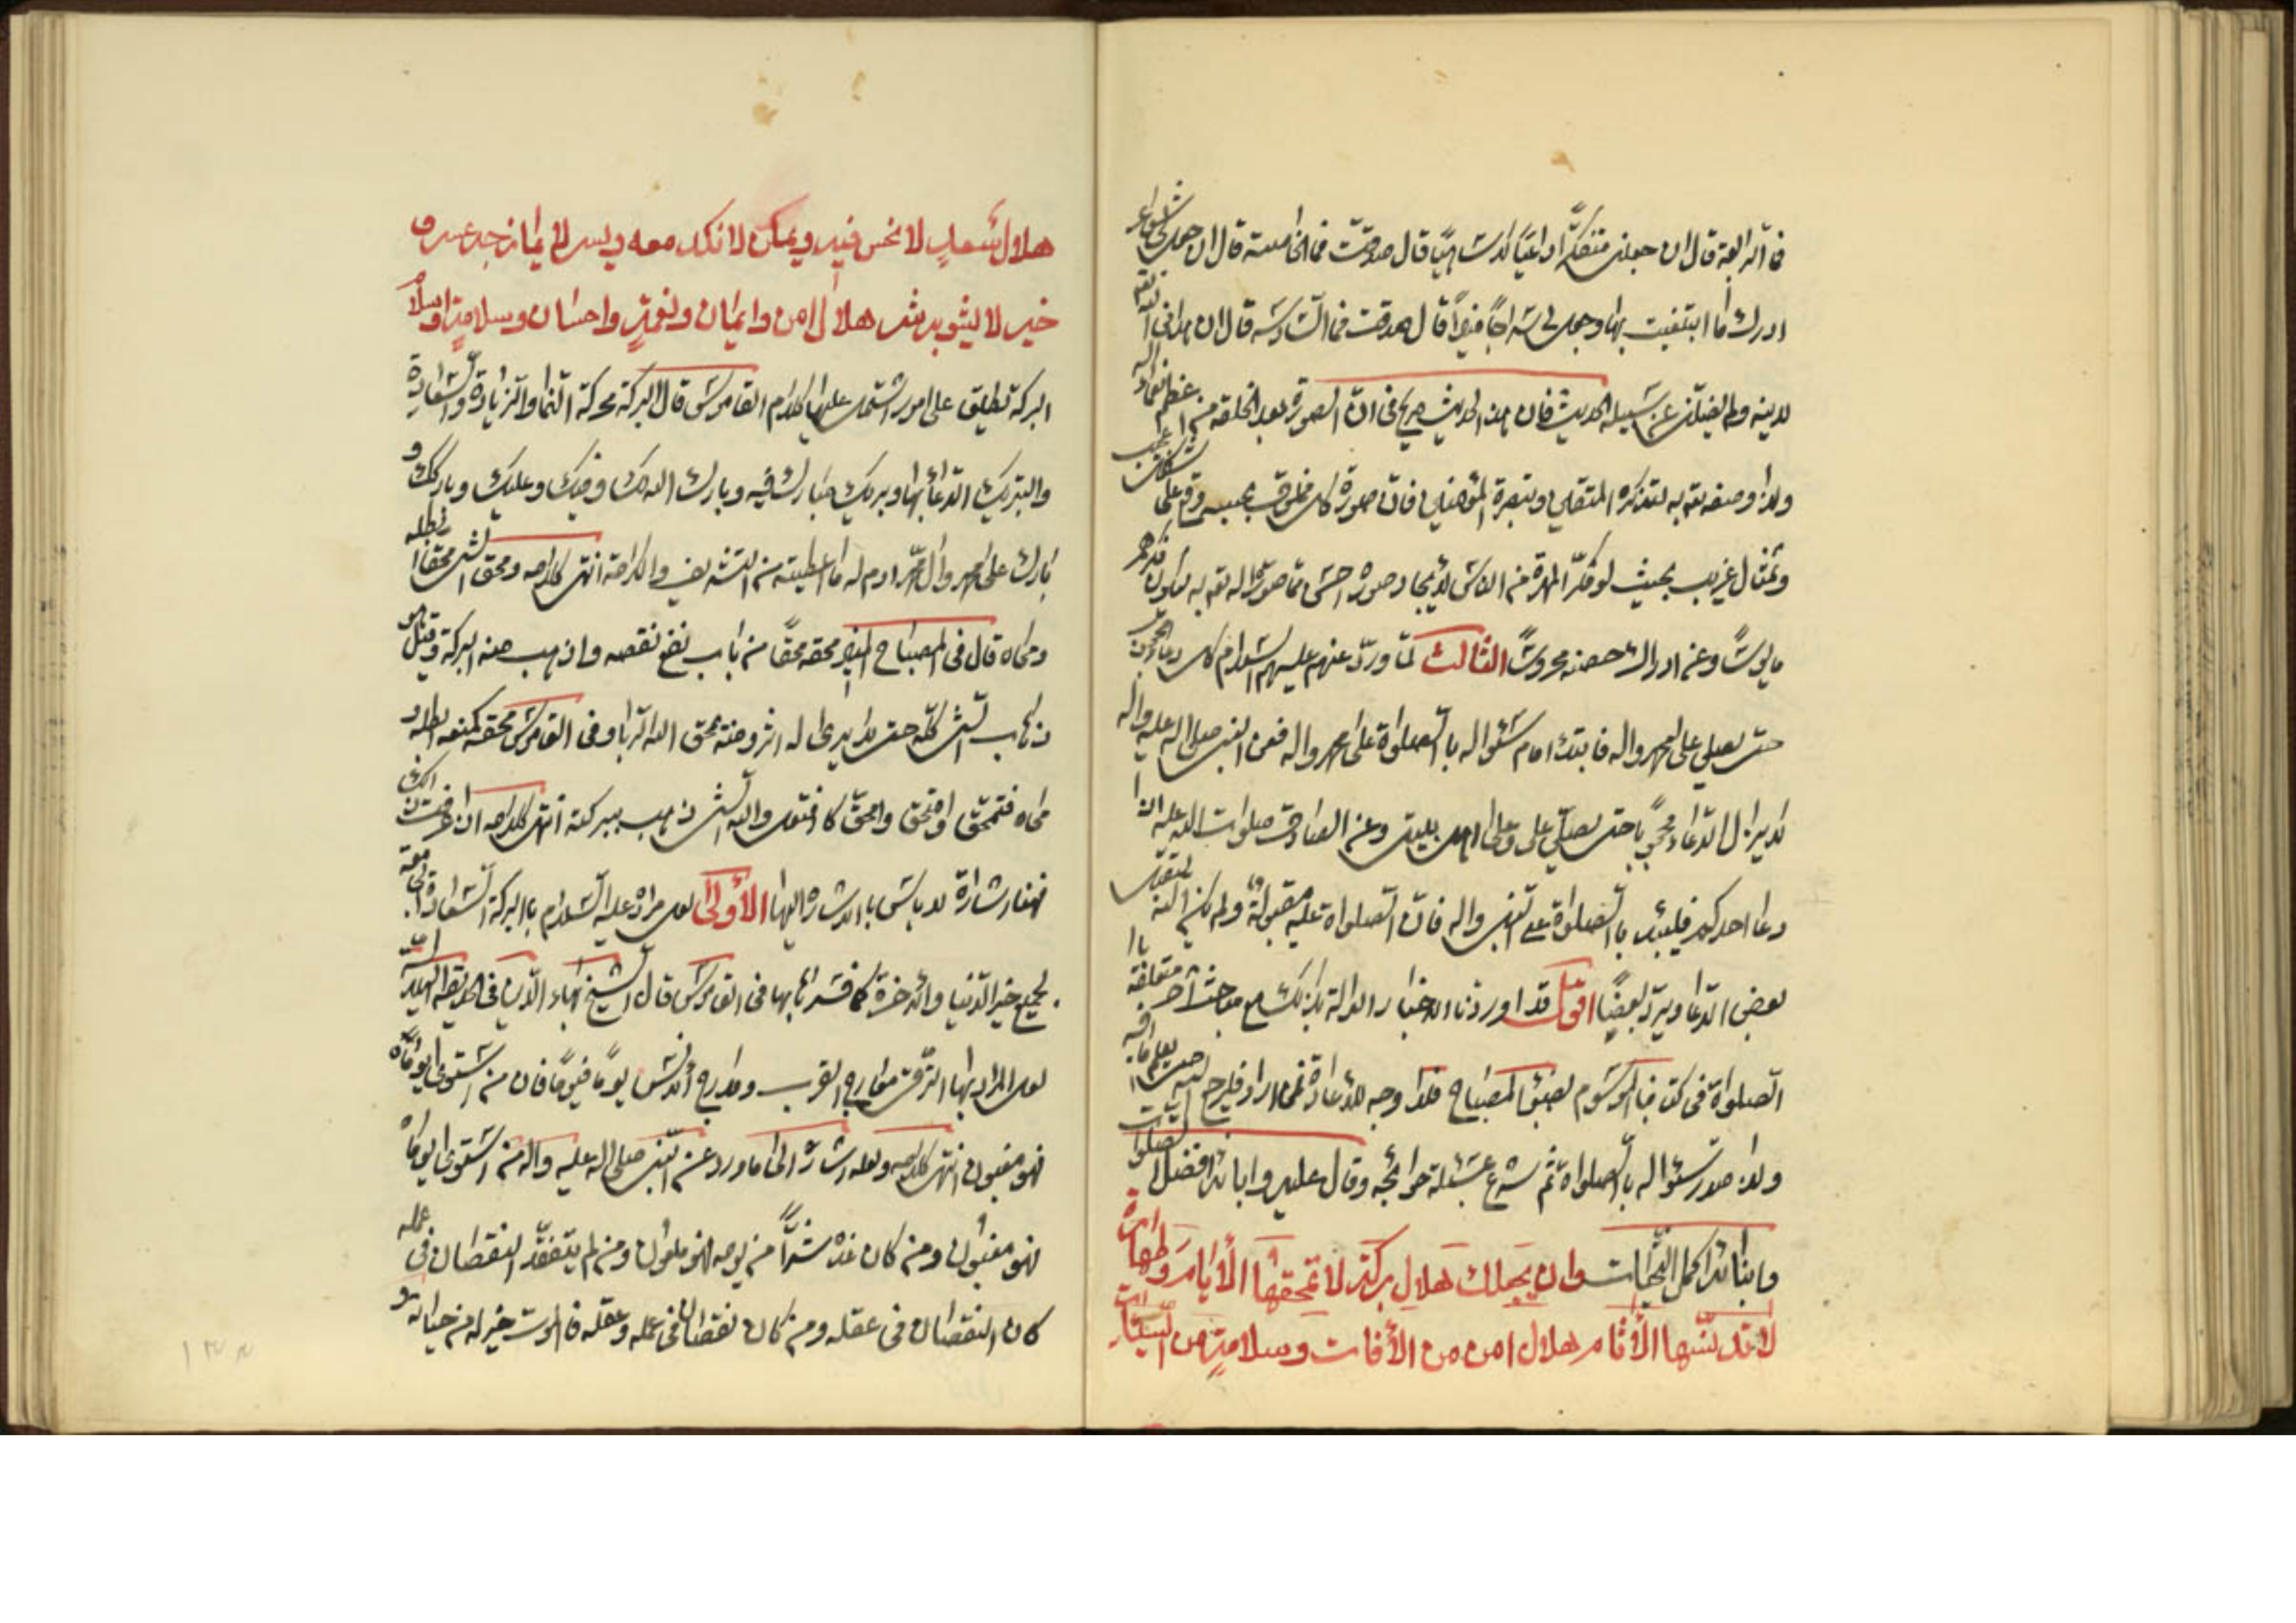 فالرابعة قال ان جعلنى متفكرا واعيا لا ساهيا قال صدقت فما الخامسة قال ان جعل لى شواعر
ادرك ما ابتغيت بها وجعل لى سراجا منيرا قال صدقت فما السادسة قال ان هدانى الله
لدينه ولم يضلنى عن سبيله الحديث فان هذا الحديث صريح فى ان الصورة بعد الخلقة من اعظم
ولذا وصفه به لتذكرة المتقين وتبصرة المؤمنين فان صورة كل مخلوق عجيب وقع على شكل
وتمثال غريب بحيث لو فكر المهرة من الناس لايجاد صورة احسن مما صوره الله به ليكون فكرهم
مايوسا وعن ادراك حصنه محروسا الثالث لما ورد عنهم عليهم السلام كل دعاء محجوب
حتى يصلى على محمد واله فابتدء امام سئواله بالصلواة على محمد واله فعن النبى صلى الله عليه واله
لا يزال الدعاء محجوبا حتى يصلى على وعلى اهل بيتى وعن الصادق صلوات الله عليه اذا
دعا احدكم فليبدء بالصلواة على النبى واله فان الصلواة عليه مقبولة ولم يكن الله ليقبل
بعض الدعاء ويرد بعضا اقول قد اوردنا الاخبار الدالة بذلك مع مباحث اخر متعلقة با
الصلواة فى كتابنا الموسوم بضياء المصباح فلا وجه للاعادة فمن اراد فليرجع اليه
ولذا صدر سئواله بالصلواة ثم شرع بمسئلة حوائجه وقال عليه وابائه افضل الصلوات
وابنائه اكمل التحيات وان يجعلك هلال بركة لا تمحقها الأيام وطهارة
لا تدنسها الأثام هلال امن من الأفات وسلامة من السيئات
هلال سعد لا نحس فيه ويمن لا نكد معه ويسر لا يمازجه عسر و
خير لا يشوبه شر هلال امن وايمان ونعمة واحسان وسلامة واسلام
البركة تطلق على امور اشتمل عليها كلام القاموس قال البركة محركة النماء والزيادة والسعادة
والتبريك الدعاء بها وبريك مبارك فيه وبارك الله لك وفيك وعليك وباركك و
بارك على محمد وال محمد ادم له ما اعطيته من التشريف والكرامة انتهى كلامه ومحق الشئ محقا ابطله
ومحاه قال فى المصباح المنير محقه محقا من باب نفع نقصه واذهب منه البركة وقيل هو
ذهاب الشئ كله حتى لا يرى له اثر ومنه يمحق الله الربا وفى القاموس محقه كمنعه ابطله و
محاه فتمحق وامتحق وامحق كافتعل والله الشئ ذهب ببركته انتهى كلامه اذا عرفت ذلك
فهنا اشارة لا باس بالاشارة اليها الأولى لعل مراده عليه السلام بالبركة السعادة الجامعة
لجميع خير الدنيا والاخرة كما فسرناها بها فى القاموس قال الشيخ بهاء الدين فى الحديقة الهلالية
لعل المراد بها الترقى معارج القرب ومدارج الانس يوما فيوما فان من استوى يوماه
فهو مغبون انتهى كلامه ولعله اشارة الى ما ورد عن النبى صلى الله عليه واله من استوى يوماه
فهو مغبون ومن كان غده شرا من يومه فهو ملعون ومن لم يتفقد النقصان فى عمله
كان النقصان فى عقله ومن كان نقصان فى عمله وعقله فالموت خير له من حياته و